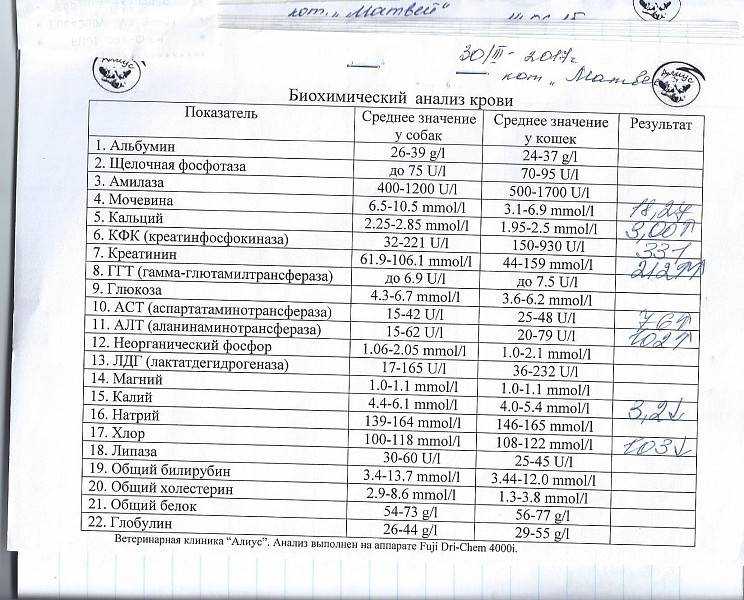 кот „Матвей"
30/III - 2017г
кот „ Матвей
Алиус
Биохимический анализ крови
Показатель Среднее значение у собак Среднее значение у кошек Результат
1. Альбумин 26-39 g/l 24-37 g/l
2. Щелочная фосфотаза до 75 U/l 70-95 U/l
3. Амилаза 400-1200 U/l 500-1700 U/l
4. Мочевина 6.5-10.5 mmol/l 3.1-6.9 mmol/l 18,2↑
5. Кальций 2.25-2.85 mmol/l 1.95-2.5 mmol/l 3,00↑
6. КФК (креатинфосфокиназа) 32-221 U/l 150-930 U/l 331
7. Креатинин 61.9-106.1 mmol/l 44-159 mmol/l 212↑↑
8. ГГТ (гамма-глютамилтрансфераза) до 6.9 U/l до 7.5 U/l
9. Глюкоза 4.3-6.7 mmol/l 3.6-6.2 mmol/l
10. АСТ (аспартатаминотрансфераза) 15-42 U/l 25-48 U/l 76↑
11. АЛТ (аланинаминотрансфераза) 15-62 U/l 20-79 U/l 102↑
12. Неорганический фосфор 1.06-2.05 mmol/l 1.0-2.1 mmol/l
13. ЛДГ (лактатдегидрогеназа) 17-165 U/l 36-232 U/l
14. Магний 1.0-1.1 mmol/l 1.0-1.1 mmol/l
15. Калий 4.4-6.1 mmol/l 4.0-5.4 mmol/l 3,2↓
16. Натрий 139-164 mmol/l 146-165 mmol/l
17. Хлор 100-118 mmol/l 108-122 mmol/l 103↓
18. Липаза 30-60 U/l 25-45 U/l
19. Общий билирубин 3.4-13.7 mmol/l 3.44-12.0 mmol/l
20. Общий холестерин 2.9-8.6 mmol/l 1.3-3.8 mmol/l
21. Общий белок 54-73 g/l 56-77 g/l
22. Глобулин 26-44 g/l 29-55 g/l
Ветеринарная клиника "Алиус". Анализ выполнен на аппарате Fuji Dri-Chem 4000i.